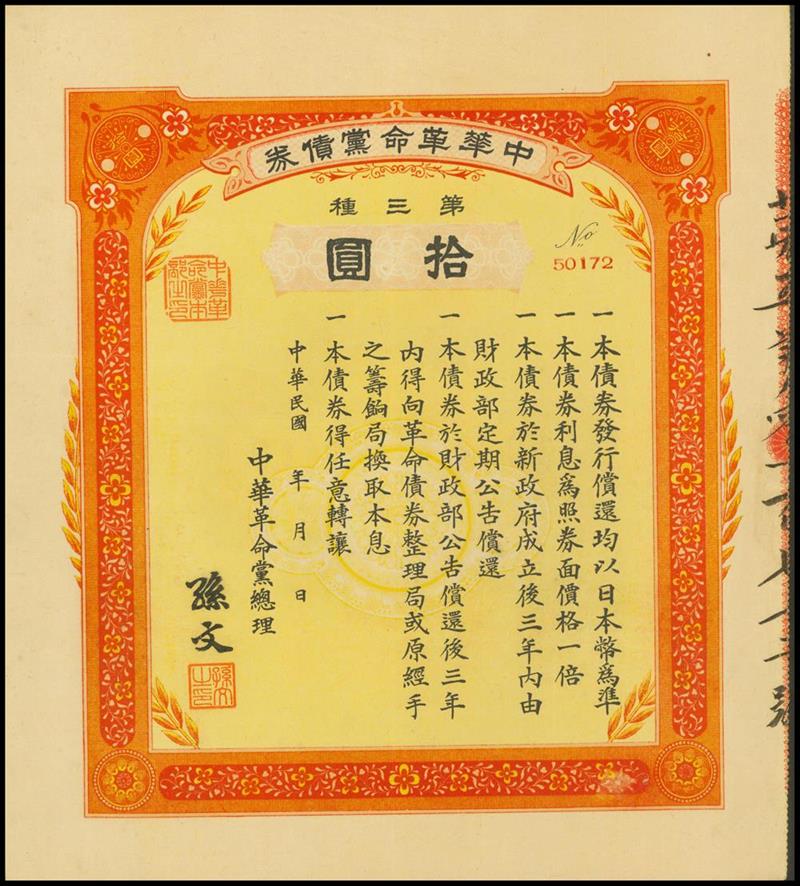 中華革命黨債券
第三種
拾圓
No
50172
一本債券發行償還均以日本幣爲準
一本債券利息爲照券面價格一倍
一本債券於新政府成立後三年內由
財政部定期公告償還
一本債券於財政部公告償還後三年
內得向革命債券整理局或原經手
之籌餉局換取本息
一本債券得任意轉讓
中華民國 年 月 日
中華革命黨總理
孫文
中華革
命黨本
部之印
孫文
之印